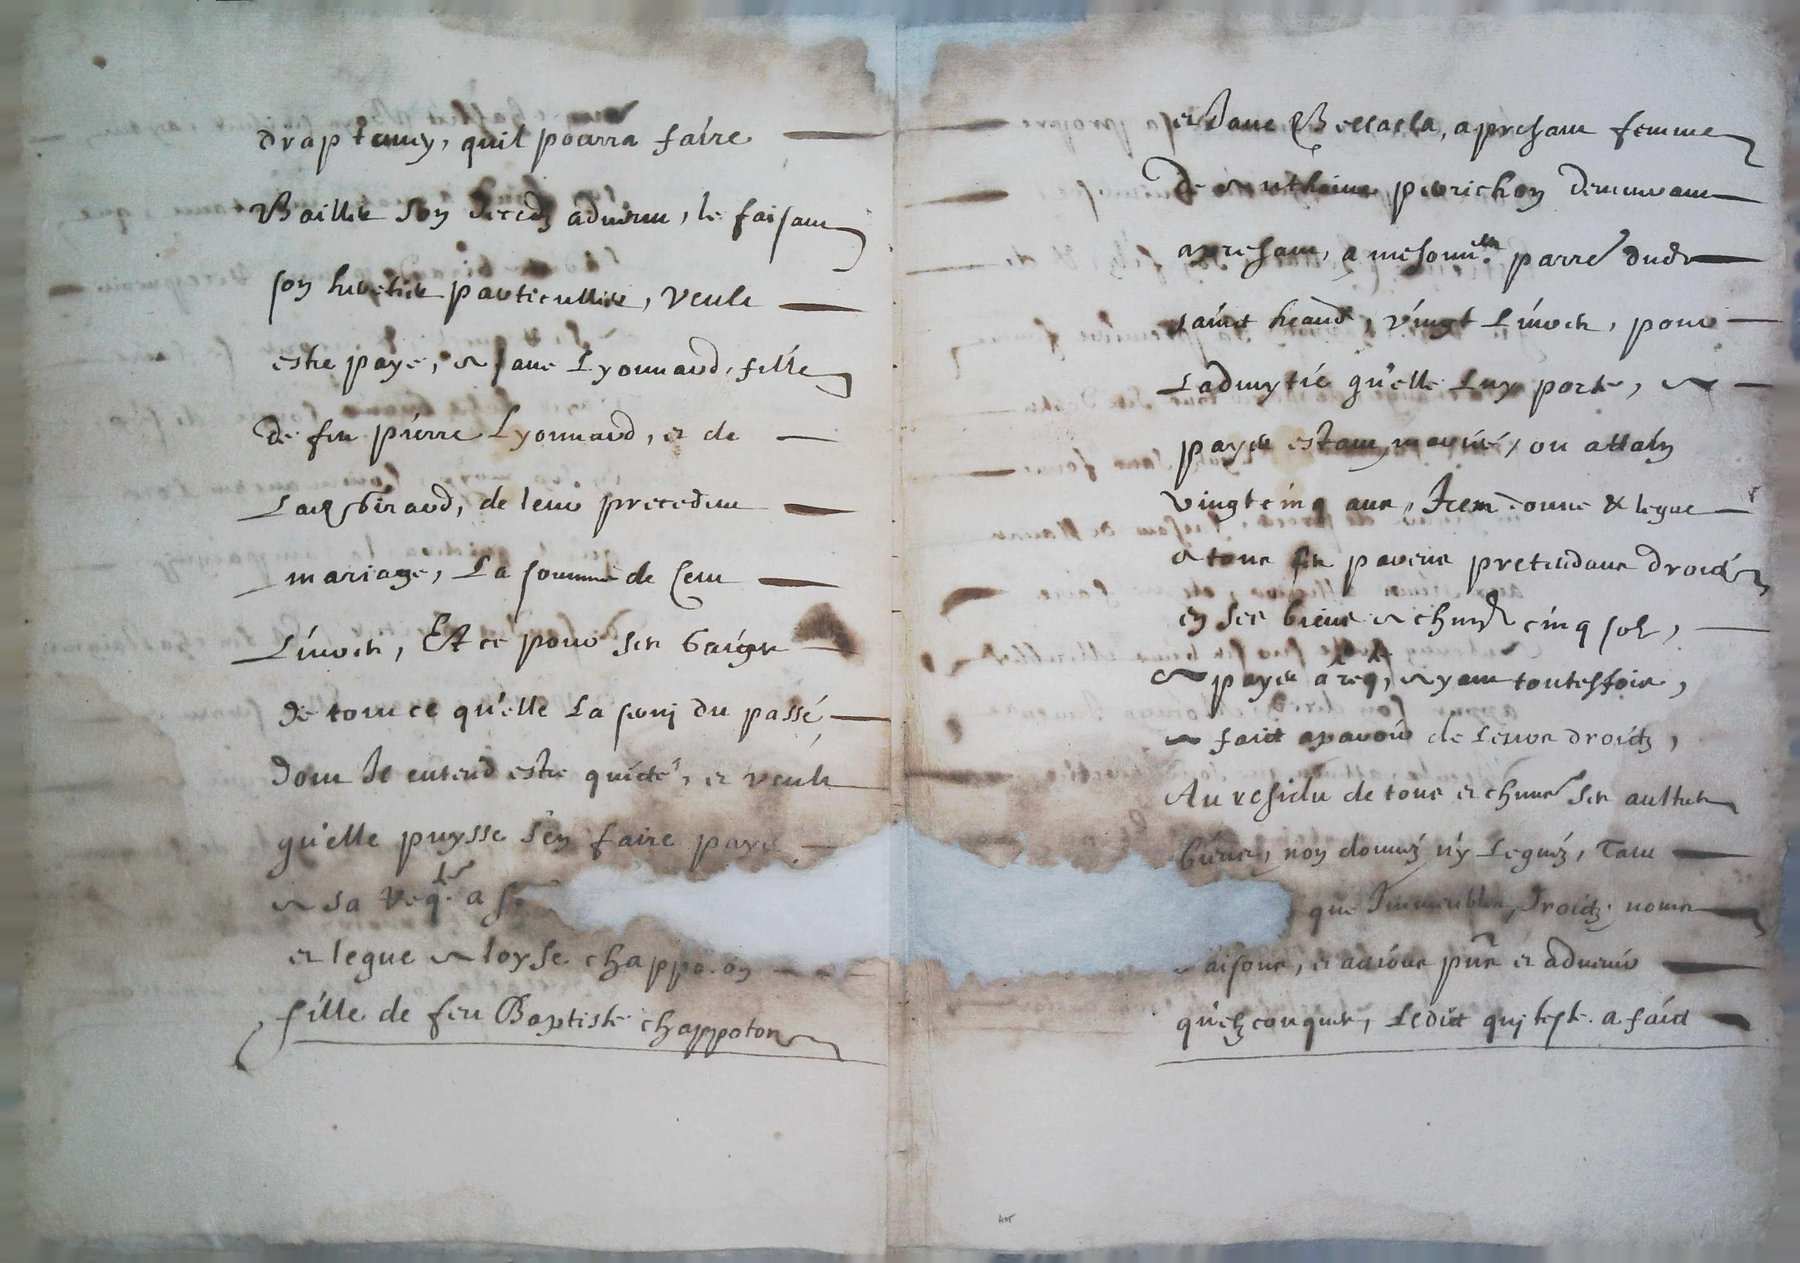 quil pourra faire
Bailler son decedz advenu, le faisant
son heretier particullier, veult
estre payé, a Jane Lyonnard, fille
de feu pierre Lyonnard, et de
de leur precedent
mariage, La somme de Cent
Livres, Et ce pour ses gaiges
de tout ce qu'elle La servi du passé,
dont Il entend estre quicte, et veult
qu'elle puysse s'en faire paye
a sa req.te a
et legue a loyse chappoton
fille de feu Baptiste chappoton
et Jane apresant femme
de Anthoine perichon demeurant
apresant, a parre dud
vingt Livres, pour
Ladmytié qu'elle Luy porte, a
payer estant mariée, ou attain
vingt cinq ans, Item donne & legue
a tous ses parens pretendans droictz
en ses biens a chung cinq solz,
a payer a req.te, ayant toutesfois,
a faict aparoir de Leurs droictz,
Au residu de tous et chuns ses aultres
biens, non donnéz n'y Leguéz, Tant
que Immeubles, droictz, noms
raisons, et actions pns et advenir
quelzconques, Ledit qui teste. a faict